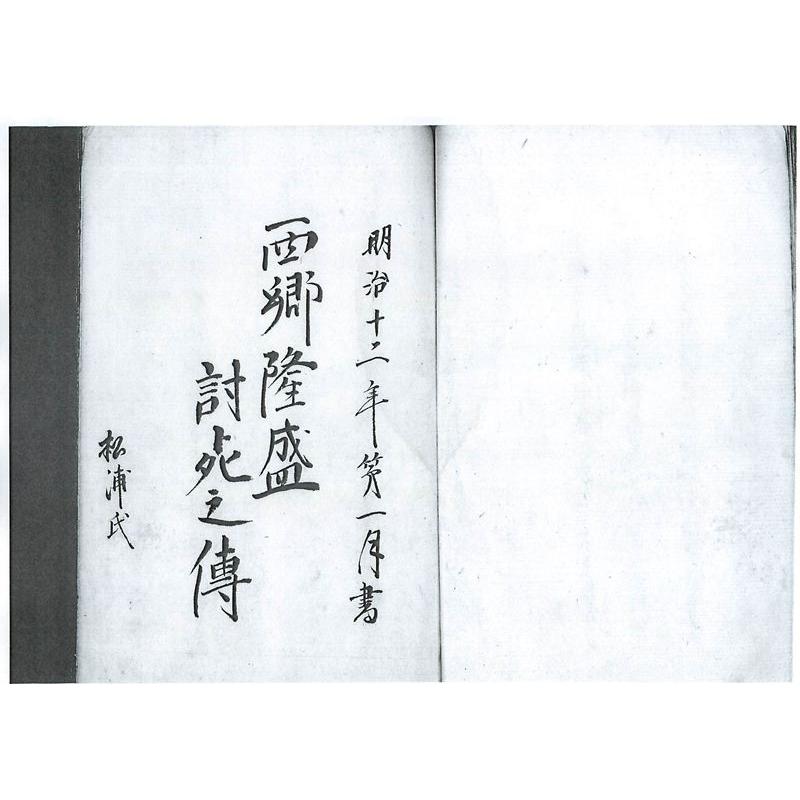 明治十二年第一月書
西郷隆盛
討死之傳
松浦氏